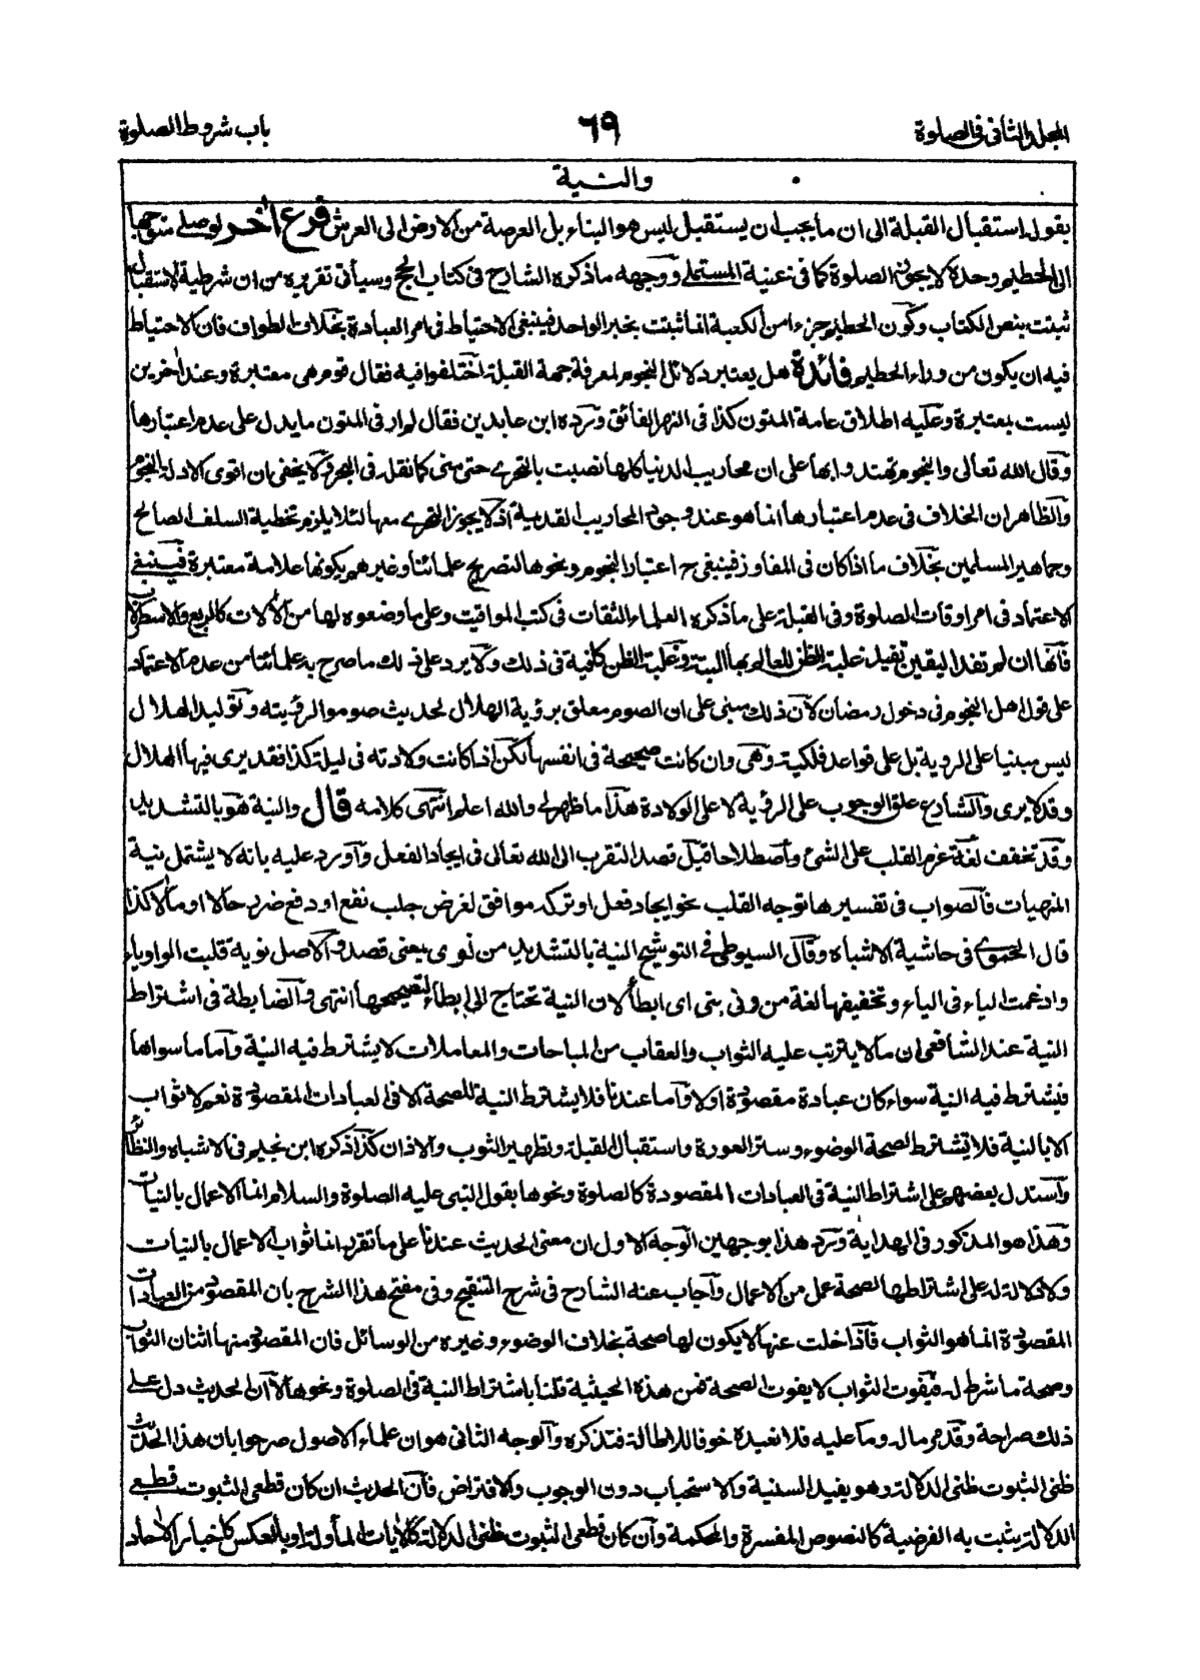 المجلد الثاني في الصلوة
٦٩
باب شروط الصلوة
والنية
بقوله استقبال القبلة الى ان ما يجب ان يستقبل ليس هو البناء بل العرصة من الارض الى العرش فرع اخر لو صلى متوجها
الى الحطيم وحده لا يجوز الصلوة كما في غنية المستملى ووجهه ما ذكره الشارح في كتاب الحج وسيأتى تقريره من ان شرطية الاستقبال
ثبتت بنص الكتاب وكون الحطيم جزءا من الكعبة انما ثبتت بخبر الواحد فينبغى الاحتياط في امر العبادة بخلاف الطواف فان الاحتياط
فيه ان يكون من وراء الحطيم فائدة هل يعتبر دلائل النجوم لمعرفة جهة القبلة اختلفوا فيه فقال قوم هى معتبرة وعند اخرين
ليست بمعتبرة وعليه اطلاق عامة المتون كذا في النهر الفائق ورده ابن عابدين فقال لم ار في المتون ما يدل على عدم اعتبارها
وقال الله تعالى والنجوم لتهتدوا بها على ان محاريب الدنيا كلها نصبت بالتحرى حتى منى كما نقله في البحر ولا يخفى ان اقوى الادلة النجوم
والظاهر ان الخلاف في عدم اعتبارها انما هو عند وجود المحاريب القديمة اذ لا يجوز التحرى معها لئلا يلزم تخطية السلف الصالح
وجماهير المسلمين بخلاف ما اذا كان في المفاوز فينبغى ح اعتبار النجوم ونحوها لتصريح علمائنا وغيرهم بكونها علامة معتبرة فينبغى
الاعتماد في امر اوقات الصلوة وفي القبلة على ما ذكره العلماء الثقات في كتب المواقيت وعلى ما وضعوه لها من الآلات كالربع والاسطرلاب
فانها ان لم تفد اليقين تفيد غلبة الظن للعالم بها البتة وغلبة الظن كافية في ذلك ولا يرد على ذلك ما صرح به علمائنا من عدم الاعتماد
على قول اهل النجوم في دخول رمضان لان ذلك مبنى على ان الصوم معلق برؤية الهلال لحديث صوموا لرؤيته وتوليد الهلال
ليس مبنيا على الروية بل على قواعد فلكية وهى وان كانت صحيحة في انفسها لكن اذا كانت ولادته في ليلة كذا فقد يرى فيها الهلال
وقد لا يرى والشارع علق الوجوب على الرؤية لا على الولادة هذا ما ظهر لى والله اعلم انتهى كلامه قال والنية هو بالتشديد
وقد تخفف لغة عزم القلب على الشئ واصطلاحا قيل قصد التقرب الى الله تعالى في ايجاد الفعل واورد عليه بانه لا يشتمل نية
المنهيات فالصواب في تفسيرها توجه القلب نحو ايجاد فعل او تركه موافق لغرض جلب نفع او دفع ضرر حالا او مآلا كذا
قال الحموى في حاشية الاشباه وقال السيوطى في التوشيح النية بالتشديد من نوى يعنى قصد والاصل نوية قلبت الواو ياء
وادغمت الياء في الياء وتخفيفها لغة من ونى ينى اى ابطأ لان النية تحتاج الى ابطاء لتصحيحها انتهى والضابطة في اشتراط
النية عند الشافعى ان ما لا يترتب عليه الثواب والعقاب من المباحات والمعاملات لا يشترط فيه النية واما ما سواها
فيشترط فيه النية سواء كان عبادة مقصودة اولا واما عندنا فلا يشترط النية للصحة الا في العبادات المقصودة نعم لا ثواب
الا بالنية فلا تشترط لصحة الوضوء وستر العورة واستقبال القبلة وتطهير الثوب والاذان كذا ذكره ابن نجيم في الاشباه والنظائر
واستدل بعضهم على اشتراط النية في العبادات المقصودة كالصلوة ونحوها بقول النبى عليه الصلوة والسلام انما الاعمال بالنيات
وهذا هو المذكور في الهداية ويرد هذا بوجهين الوجه الاول ان معنى الحديث عندنا على ما تقرر انما ثواب الاعمال بالنيات
ولا دلالة له على اشتراطها لصحة عمل من الاعمال واجاب عنه الشارح في شرح التنقيح وفي مفتح هذا الشرح بان المقصود من العبادات
المقصودة انما هو الثواب فاذا خلت عنها لا يكون لها صحة بخلاف الوضوء وغيره من الوسائل فان المقصود منها اثنان الثواب
وصحة ما شرط له فبفوت الثواب لا يفوت الصحة فمن هذه الحيثية قلنا باشتراط النية في الصلوة ونحوها لا ان الحديث دل على
ذلك صراحة وقد مر ماله وما عليه فلا نعيده خوفا للاطالة فتذكره والوجه الثانى هو ان علماء الاصول صرحوا بان هذا الحديث
ظنى الثبوت ظنى الدلالة وهو يفيد السنية والاستحباب دون الوجوب والافتراض فان الحديث ان كان قطعى الثبوت قطعى
الدلالة يثبت به الفرضية كالنصوص المفسرة والمحكمة وان كان قطعى الثبوت ظنى الدلالة كالآيات المأولة او بالعكس كاخبار الآحاد